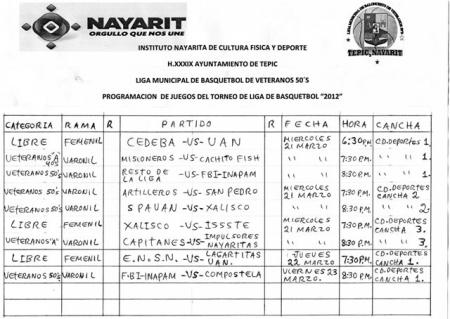 NAYARIT
ORGULLO QUE NOS UNE
TEPIC, NAYARIT
INSTITUTO NAYARITA DE CULTURA FISICA Y DEPORTE
H.XXXIX AYUNTAMIENTO DE TEPIC
LIGA MUNICIPAL DE BASQUETBOL DE VETERANOS 50´S
PROGRAMACION DE JUEGOS DEL TORNEO DE LIGA DE BASQUETBOL "2012"
CATEGORIA RAMA R PARTIDO R FECHA HORA CANCHA
LIBRE FEMENIL CEDEBA -VS- UAN MIERCOLES 21 MARZO 6:30P.M. C.D.DEPORTES 1.
VETERANOS "A" 40S VARONIL MISIONEROS -VS- CACHITO FISH " " 7:30 P.M. " " 1.
VETERANOS 50'S VARONIL RESTO DE LA LIGA -VS- FBI-INAPAM " " 8:30 P.M. " " 1.
VETERANOS 50'S VARONIL ARTILLEROS -VS- SAN PEDRO MIERCOLES 21 MARZO 7:30 P.M. CD.DEPORTES CANCHA 2
VETERANOS 50'S VARONIL SPAUAN -VS- XALISCO " " 8:30 P.M. " " 2.
LIBRE FEMENIL XALISCO -VS- ISSSTE MIERCOLES 21 MARZO 7:30 P.M. CD.DEPORTES CANCHA 3.
VETERANOS "A" VARONIL CAPITANES -VS- IMPULSORES NAYARITAS " " 8:30 P.M. " " 3.
LIBRE FEMENIL E.N.S.N. -VS- LAGARTITAS UAN. JUEVES 22 MARZO 7:30P.M. CD.DEPORTES CANCHA 1.
VETERANOS 50'S VARONIL FBI-INAPAM -VS- COMPOSTELA VIERNES 23 MARZO. 8:30 P.M. CD.DEPORTES CANCHA 1.